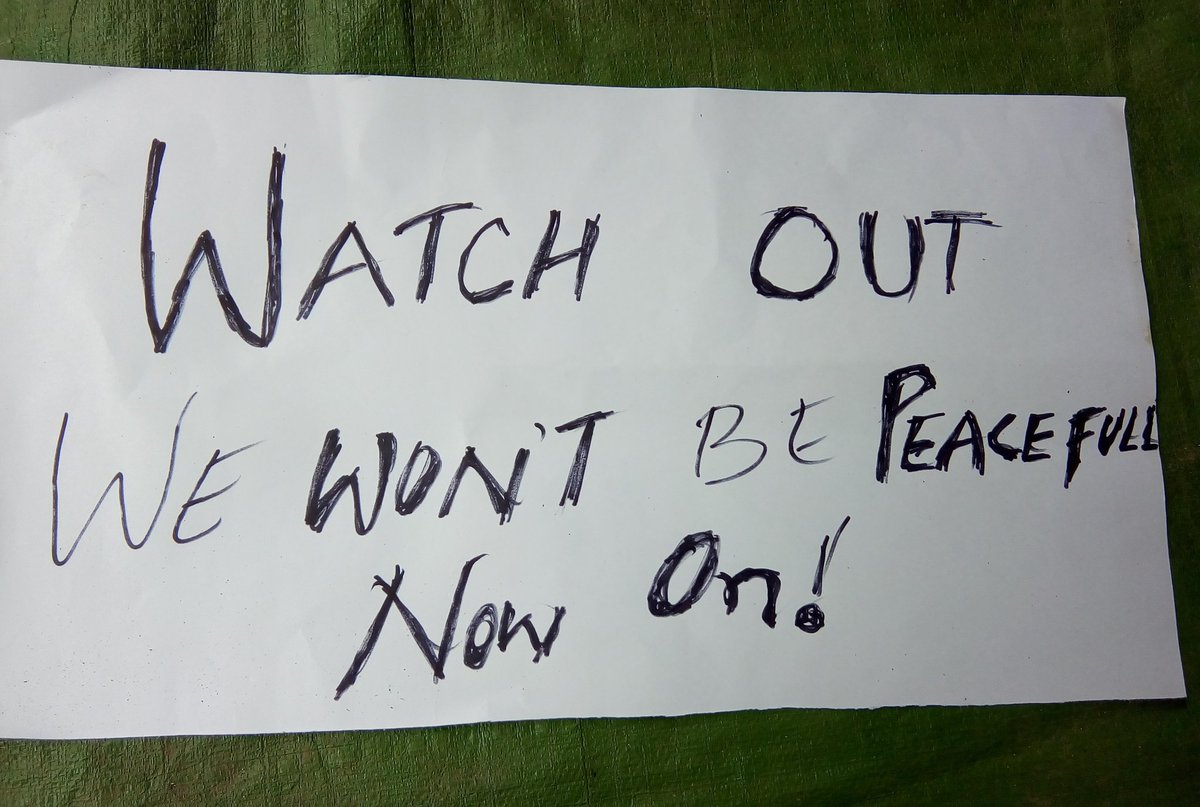 WATCH OUT
WE WON'T BE PEACEFULL
Now On!